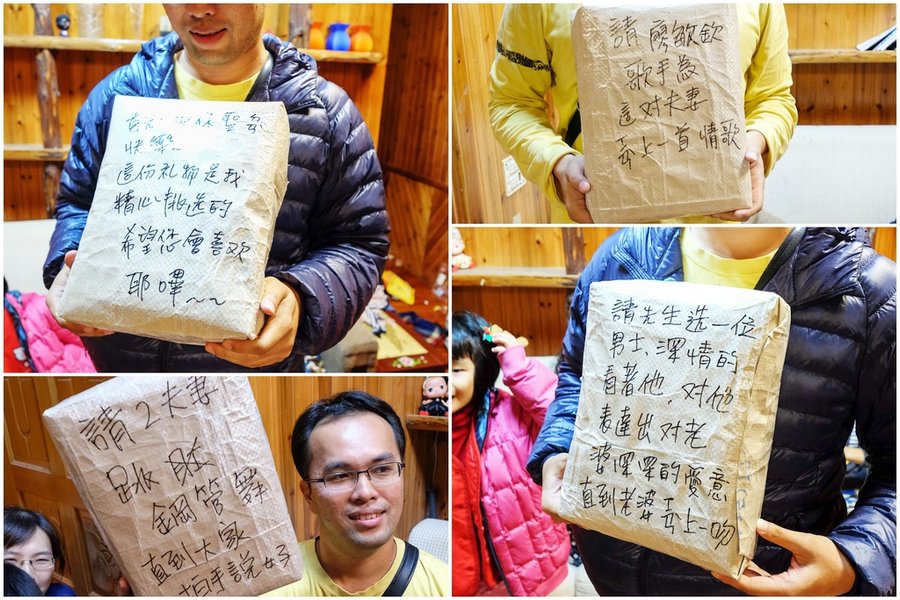 聖
快樂~
這份礼物是我
精心挑选的
希望您會喜欢
耶嗶~~
請 廖敏欽
歌手為
這对夫妻
奉上一首情歌
請2夫妻
跳段
鋼管舞
直到大家
拍手說好
請先生选一位
男士、深情的
看著他.对他
表達出对老
婆深深的愛意
直到老婆奉上一吻